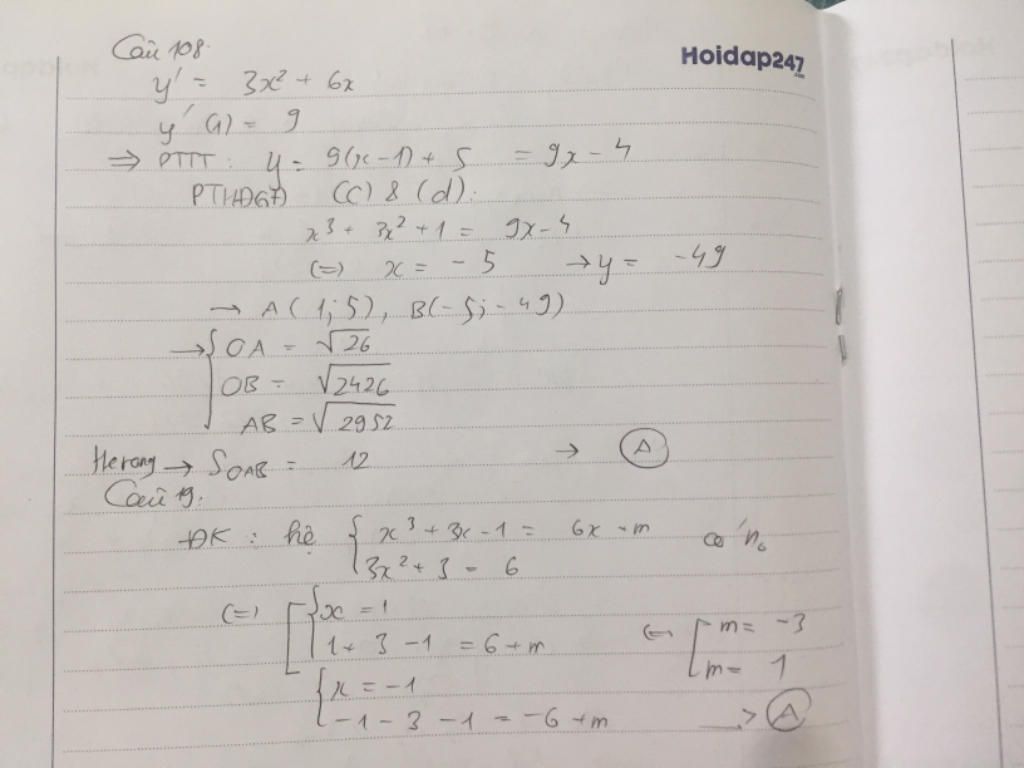 Câu 108.
Hoidap247.com
y' = 3x² + 6x
y'(1) = 9
⇒ PTTT : y = 9(x - 1) + 5 = 9x - 4
PTHĐGĐ (C) & (d):
x³ + 3x² + 1 = 9x - 4
(=) x = - 5 → y = - 49
→ A(1; 5), B(-5; -49)
→ { OA = √26
OB = √2426
AB = √2952
Herong → S_OAB = 12 → A
Câu 19.
ĐK : hệ { x³ + 3x - 1 = 6x + m có n₀
3x² + 3 = 6
(=) [ { x = 1
1 + 3 - 1 = 6 + m (=) [ m = -3
m = 1
{ x = -1
-1 - 3 - 1 = -6 + m -> A